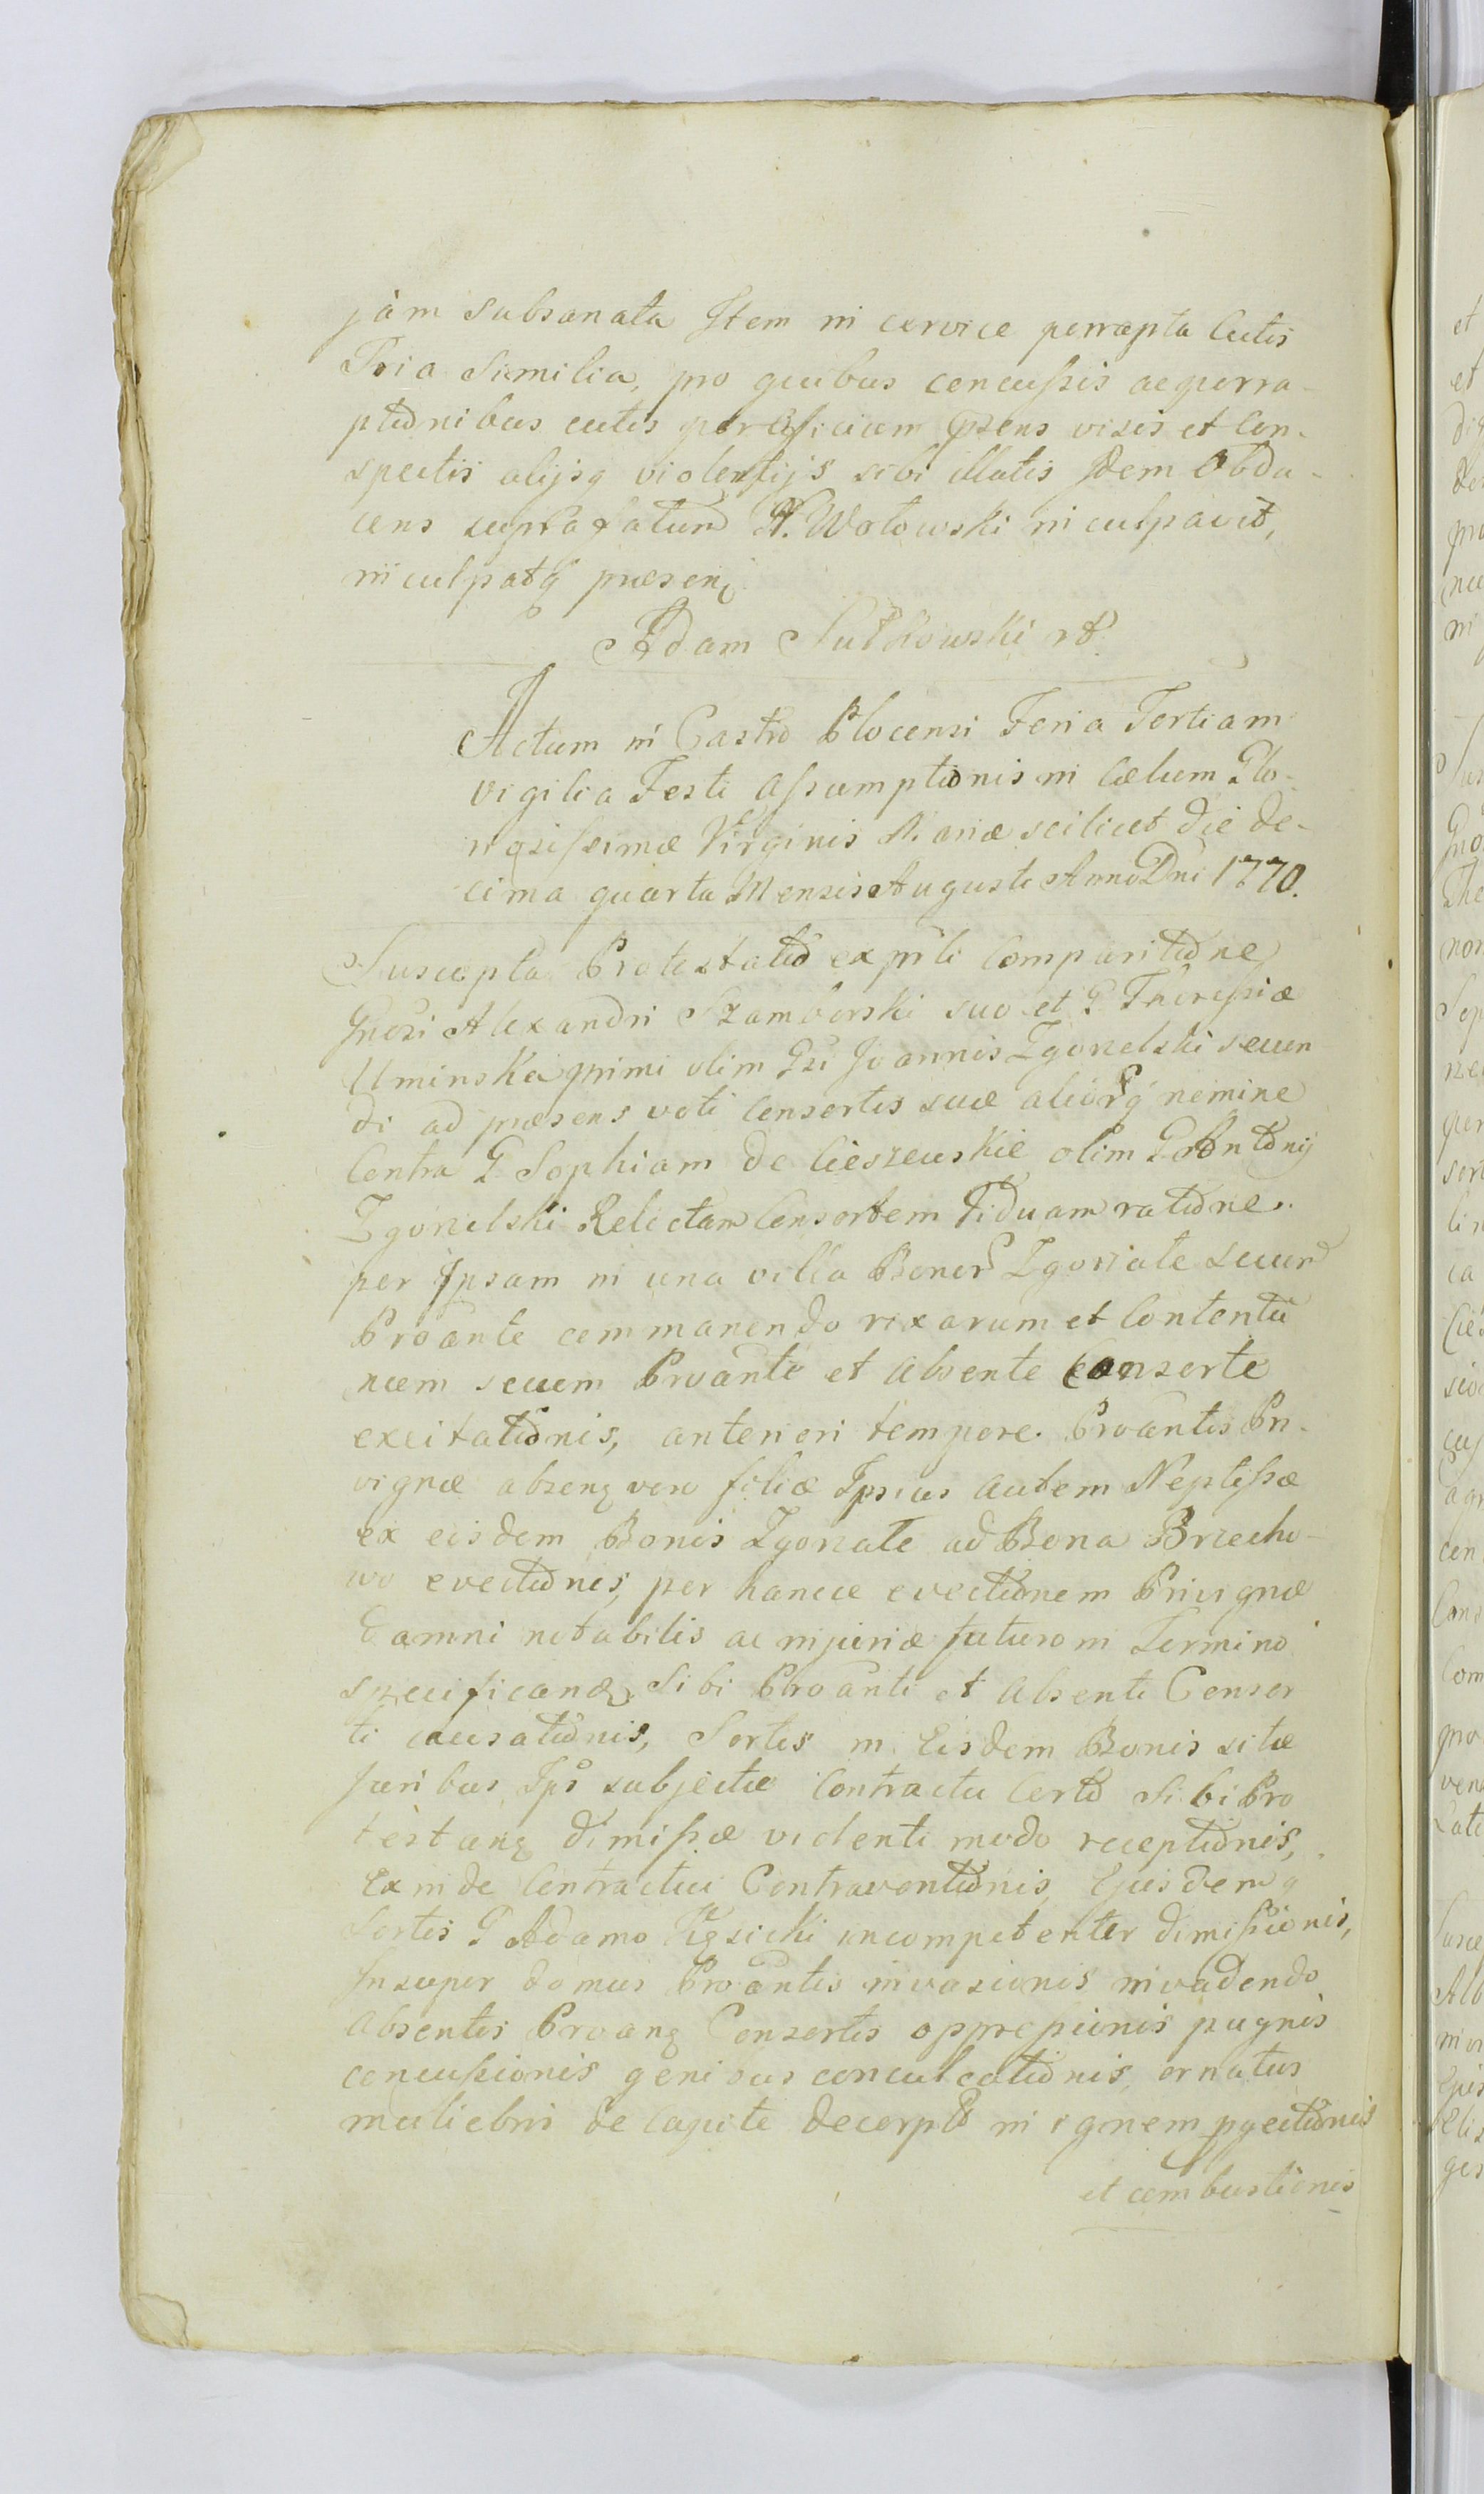 jàm subsanata Item in cervice perrapta Cutis
Tria Similia, pro quibus concussis ac perra-
ptionibus cutis per Officium psens visis et Con-
spectis alijsq violentijs sibi illatis Idem Obdu-
cens suprafatum N. Wołowski in culpavit,
in culpatq praesenz
Adam Sutkowski
Actum in Castro Plocensi Feria Tertia in
vigilia Festi Assumptionis in Caelum Glo-
riosissimae Virginis Mariae scilicet die de-
cima quarta Mensis Augusti Anno Dni 1770.
Suscepta Protestatio ex prli Comparitione
Gnosi Alexandri Szamborski suo et G Theressiae
Uminska primi olim Gsi Joannis Zgorzelski secun
di ad praesens voti Consortis suae aliorq nemine
Contra G Sophiam de Cieszewskie olim G Antonij
Zgorzelski Relictam Consortem Viduam ratione
per Ipsam in una villa Bonor Zgorzałe secum
Proante commanendo rixarum et Contentu
num secum Proante et absente Consorte
excitationis, anteriori tempore Proantis Pri-
vignae absenz vero filiae Ipsius autem Neptissae
ex eisdem Bonis Zgorzałe ad Bona Brzecho-
wo evectionis, per hancce evectionem Privignae
Damni notabilis ac injuriae futuro in Termino
specificanda, Sibi Proanti et absenti Consor
ti causationis, Sortis in Eisdem Bonis sitae
Juribus Ips subjectae Contractu Certo Sibi Pro
testanz dimissae violenti modo receptionis,
Exinde Contractui Contraventionis, Ejusdemq
Sortis G Adamo incompetenter dimissionis,
Insuper domus Proantis invasionis invadendo
Absentis Proanz Consortis oppressionis pugnis
concussionis genibus conculcationis, ornatus
muliebris de capite decerpto in ignem pjectionis
et combustionis